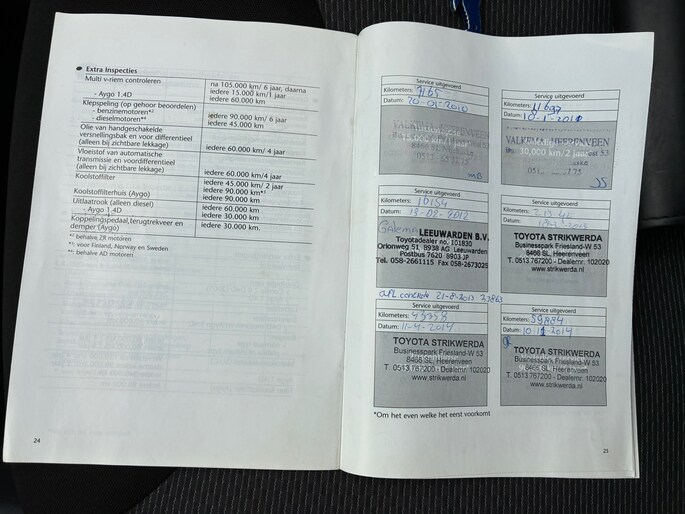 Extra Inspecties
Multi v-riem controleren
na 105.000 km/ 6 jaar, daarna
iedere 15.000 km/1 jaar
- Aygo 1.4D
iedere 60.000 km
Klepspeling (op gehoor beoordelen)
- benzinemotoren*²
iedere 90.000 km/ 6 jaar
- dieselmotoren*⁴
iedere 45.000 km
Olie van handgeschakelde
versnellingsbak en voor differentieel
(alleen bij zichtbare lekkage)
iedere 60.000 km/ 4 jaar
Vloeistof van automatische
transmissie en voordifferentieel
(alleen bij zichtbare lekkage)
iedere 60.000 km/4 jaar
Koolstoffilter
iedere 45.000 km/ 2 jaar
iedere 90.000 km*³
Koolstoffilterhuis (Aygo)
iedere 90.000 km
Uitlaatrook (alleen diesel)
iedere 60.000 km
- Aygo 1.4D
iedere 30.000 km
Koppelingspedaal,terugtrekveer en
demper (Aygo)
iedere 30.000 km.
*² behalve ZR motoren
*³: voor Finland, Norway en Sweden
*⁴: behalve AD motoren
24
Service uitgevoerd
Kilometers:
Datum:
2010
VALKEMA HEERENVEEN
Service uitgevoerd
Kilometers:
Datum:
VALKEMA HEERENVEEN
30,000 km/2 jaar
53
Service uitgevoerd
Kilometers: 10154
Datum: 13-02-2012
LEEUWARDEN B.V.
Toyotadealer no. 101830
Orionweg 51 8938 AG Leeuwarden
Postbus 7620 8903 JP
Tel. 058-2661115 Fax 058-2673025
Service uitgevoerd
Kilometers:
Datum:
TOYOTA STRIKWERDA
Businesspark Friesland-W 53
8466 SL, Heerenveen
T. 0513 767200 - Dealernr. 102020
www.strikwerda.nl
APL controle 21-8-2013
Service uitgevoerd
Kilometers:
Datum: 11-4-2014
TOYOTA STRIKWERDA
Businesspark Friesland-W 53
8466 SL, Heerenveen
T. 0513 767200 - Dealernr. 102020
www.strikwerda.nl
Service uitgevoerd
Kilometers: 59884
Datum:
TOYOTA STRIKWERDA
Businesspark Friesland-W 53
8466 SL, Heerenveen
T. 0513 767200 - Dealernr. 102020
www.strikwerda.nl
*Om het even welke het eerst voorkomt
25